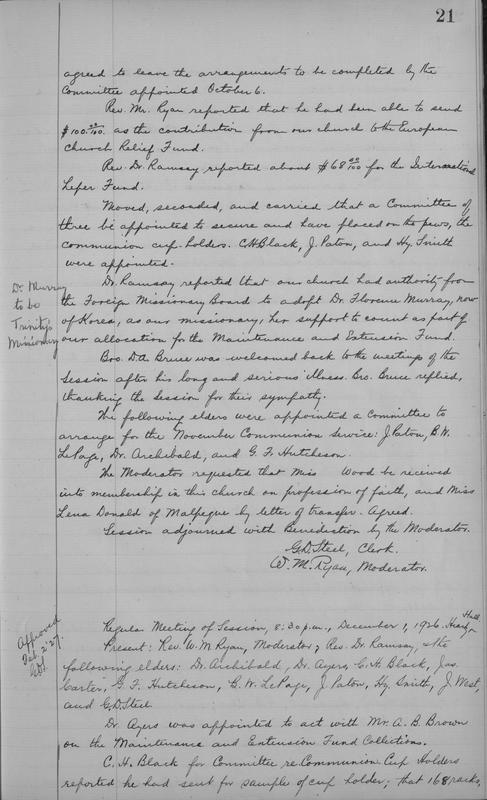 21
agreed to leave the arrangements to be completed by the
Committee appointed October 6.
Rev. Mr. Ryan reported that he had been able to send
$100.00/100. as the contribution from our church to the European
Church Relief Fund.
Rev. Dr. Ramsay reported about $68 00/100 for the International
Leper Fund.
Moved, seconded, and carried that a Committee of
three be appointed to secure and have placed on the pews, the
communion cup-holders. C.H. Black, J. Paton, and Hy. Smith
were appointed.
Dr. Ramsay reported that our church had authority from
Dr. Murray
to be
Trinity's
Missionary
the Foreign Missionary Board to adopt Dr. Florence Murray, now
of Korea, as our missionary, her support to count as part of
our allocation for the Maintenance and Extension Fund.
Bro. D.A. Bruce was welcomed back to the meetings of the
Session after his long and serious illness. Bro. Bruce replied,
thanking the Session for their sympathy.
The following elders were appointed a Committee to
arrange for the November Communion Service: J. Paton, B.W.
LePage, Dr. Archibald, and G. F. Hutcheson.
The Moderator requested that Miss Wood be received
into membership in this church on profession of faith, and Miss
Lena Donald of Malpeque by letter of transfer. Agreed.
Session adjourned with Benediction by the Moderator.
G.D. Steel, Clerk.
W. M. Ryan, Moderator.
Approved
Feb. 2 '27.
Regular Meeting of Session, 8:30 p.m., December 1, 1926. Heartz Hall
Present: Rev. W. M. Ryan, Moderator; Rev. Dr. Ramsay, & the
following elders: Dr. Archibald, Dr. Ayers, C. H. Black, Jas.
Carter, G. F. Hutcheson, B. W. LePage, J. Paton, Hy. Smith, J. West,
and G.D. Steel
Dr. Ayers was appointed to act with Mr. A. B. Brown
on the Maintenance and Extension Fund Collections.
C. H. Black for Committee re Communion Cup Holders
reported he had sent for sample of cup holder; that 168 racks,